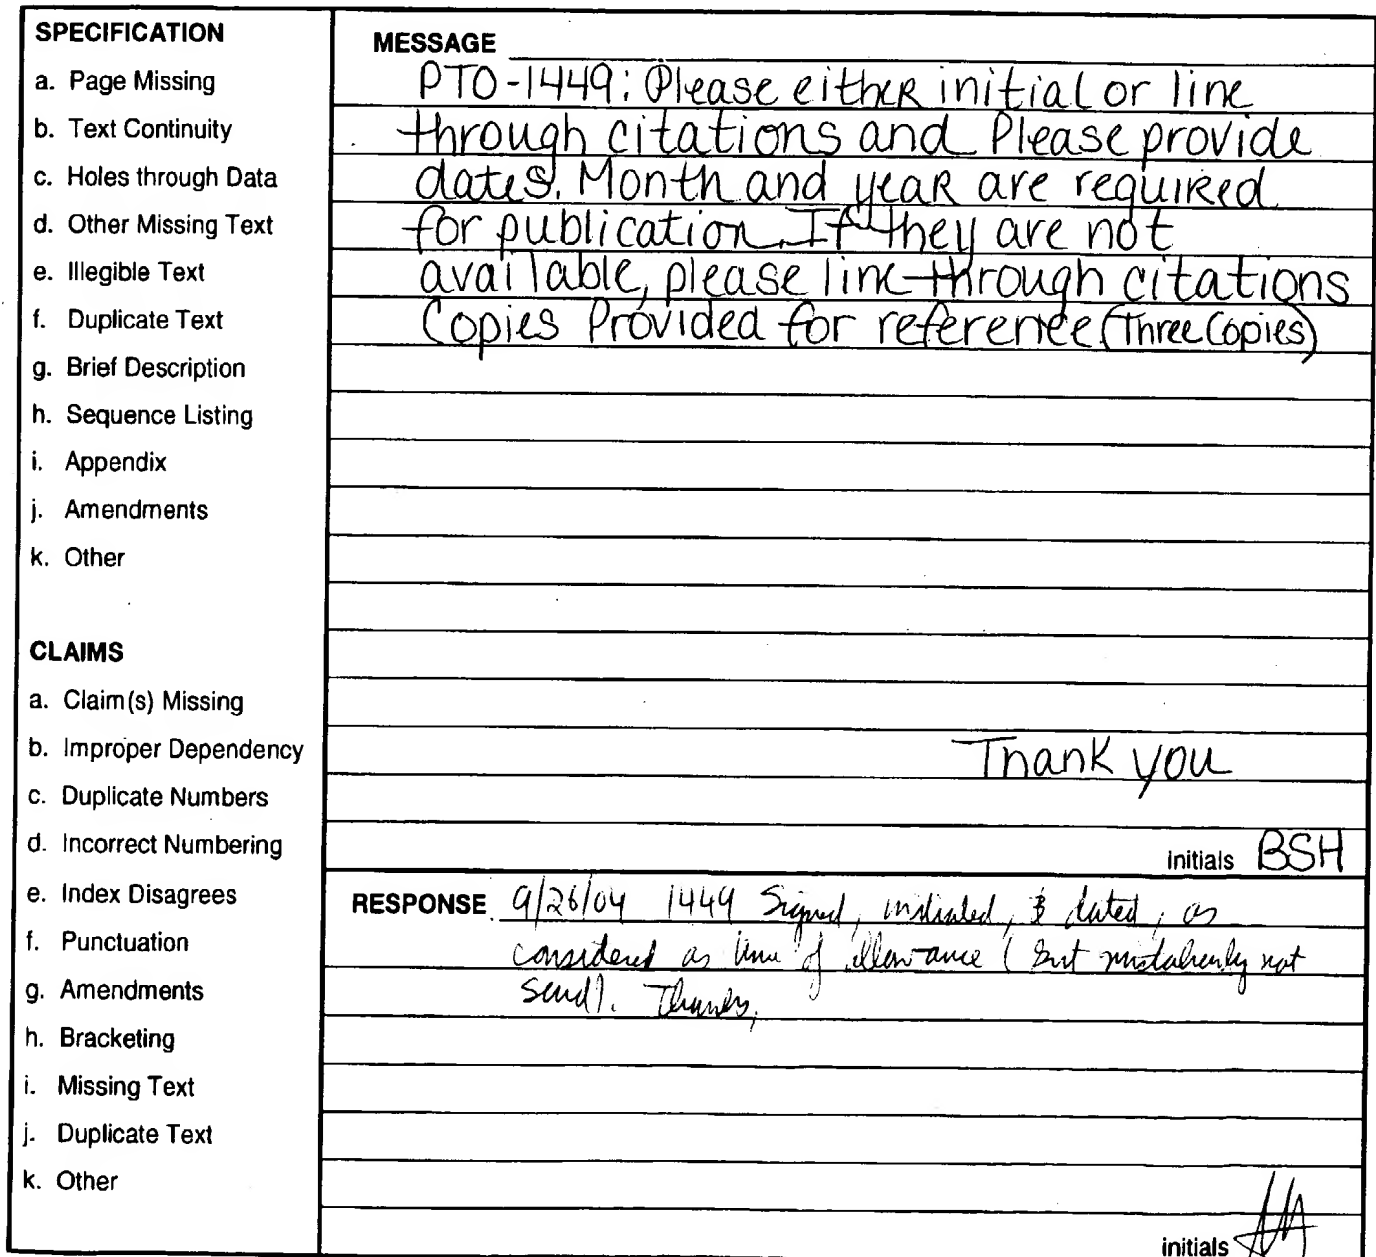 SPECIFICATION
a. Page Missing
b. Text Continuity
c. Holes through Data
d. Other Missing Text
e. Illegible Text
f. Duplicate Text
g. Brief Description
h. Sequence Listing
i. Appendix
j. Amendments
k. Other
CLAIMS
a. Claim(s) Missing
b. Improper Dependency
c. Duplicate Numbers
d. Incorrect Numbering
e. Index Disagrees
f. Punctuation
g. Amendments
h. Bracketing
i. Missing Text
j. Duplicate Text
k. Other
MESSAGE
PTO-1449: Please either initial or line
through citations and Please provide
dates. Month and year are required
for publication. If they are not
available, please line through citations
Copies Provided for reference (Three Copies)
Thank you
initials BSH
RESPONSE 9/26/04 1449 Signed, initialed, & dated, as
considered as time of allowance (but mistakenly not
send). Thanks,
initials